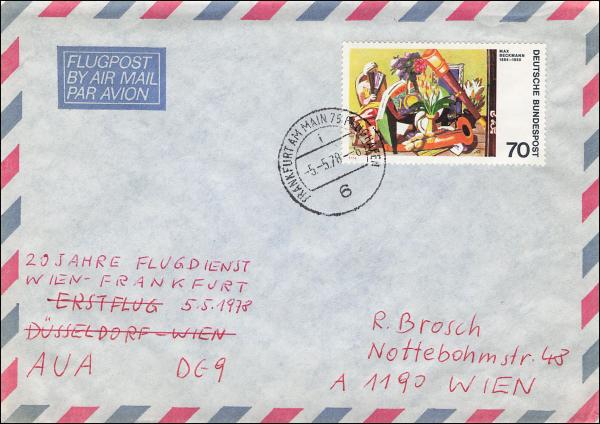 FLUGPOST
BY AIR MAIL
PAR AVION
MAX
BECKMANN
1884-1950
DEUTSCHE BUNDESPOST
70
FRANKFURT AM MAIN 75 FLUGHAFEN
i
-5.-5.78.-6
6
20 JAHRE FLUGDIENST
WIEN-FRANKFURT
ERSTFLUG 5.5.1978
DÜSSELDORF-WIEN
AUA DC9
R. Brosch
Nottebohmstr. 43
A 1190 WIEN